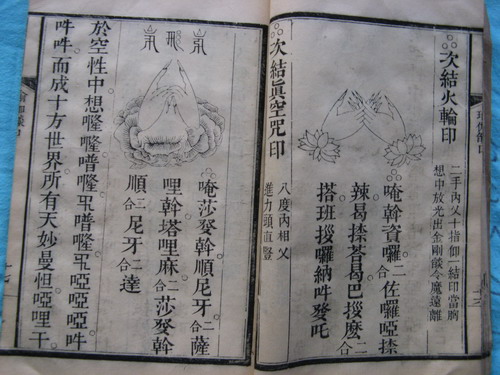 次結火輪印
二手內乂十指仰一結印當胸
想中放光出金剛燄令魔遠離
唵斡資囉二合佐囉啞㮈
辣曷㮈荅曷巴捘麽二合
搭班捘囉納吽發吒
次結眞空咒印
八度內相乂
進力頭直豎
唵莎發斡順尼牙二合薩
哩斡塔哩麻二合莎發斡
順二合尼牙二合達
於空性中想
吽吽而成十方世界所有天妙曼怛啞哩干